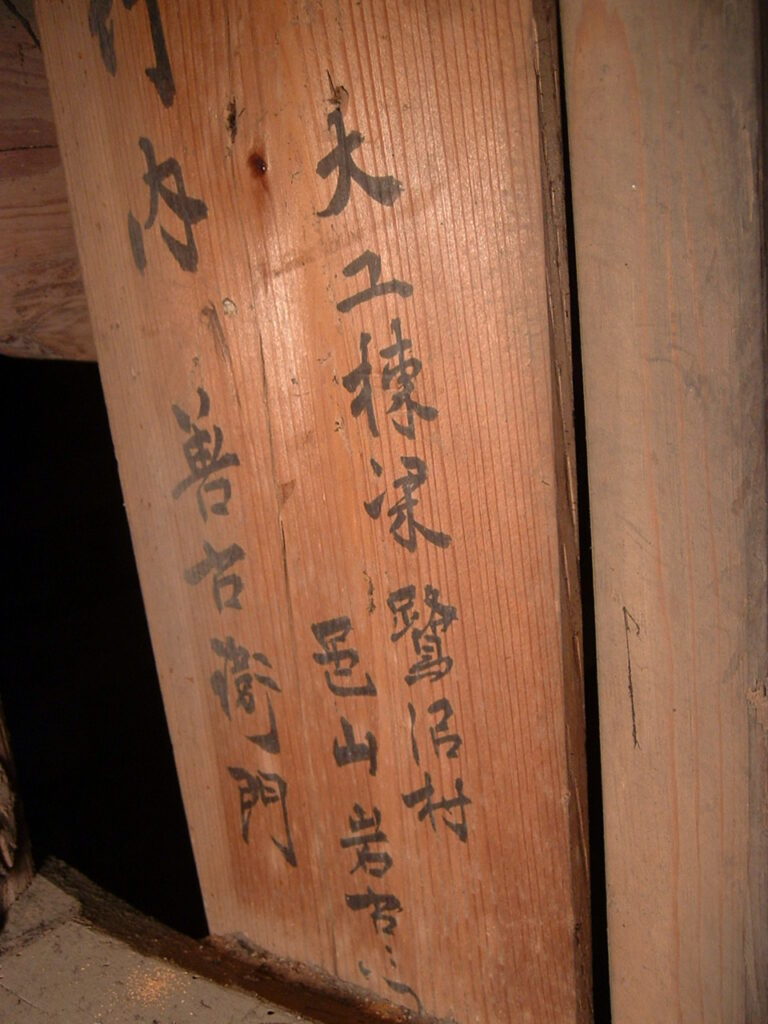 大工棟梁 鷺沼村
邑山岩右
竹内 善右衛門